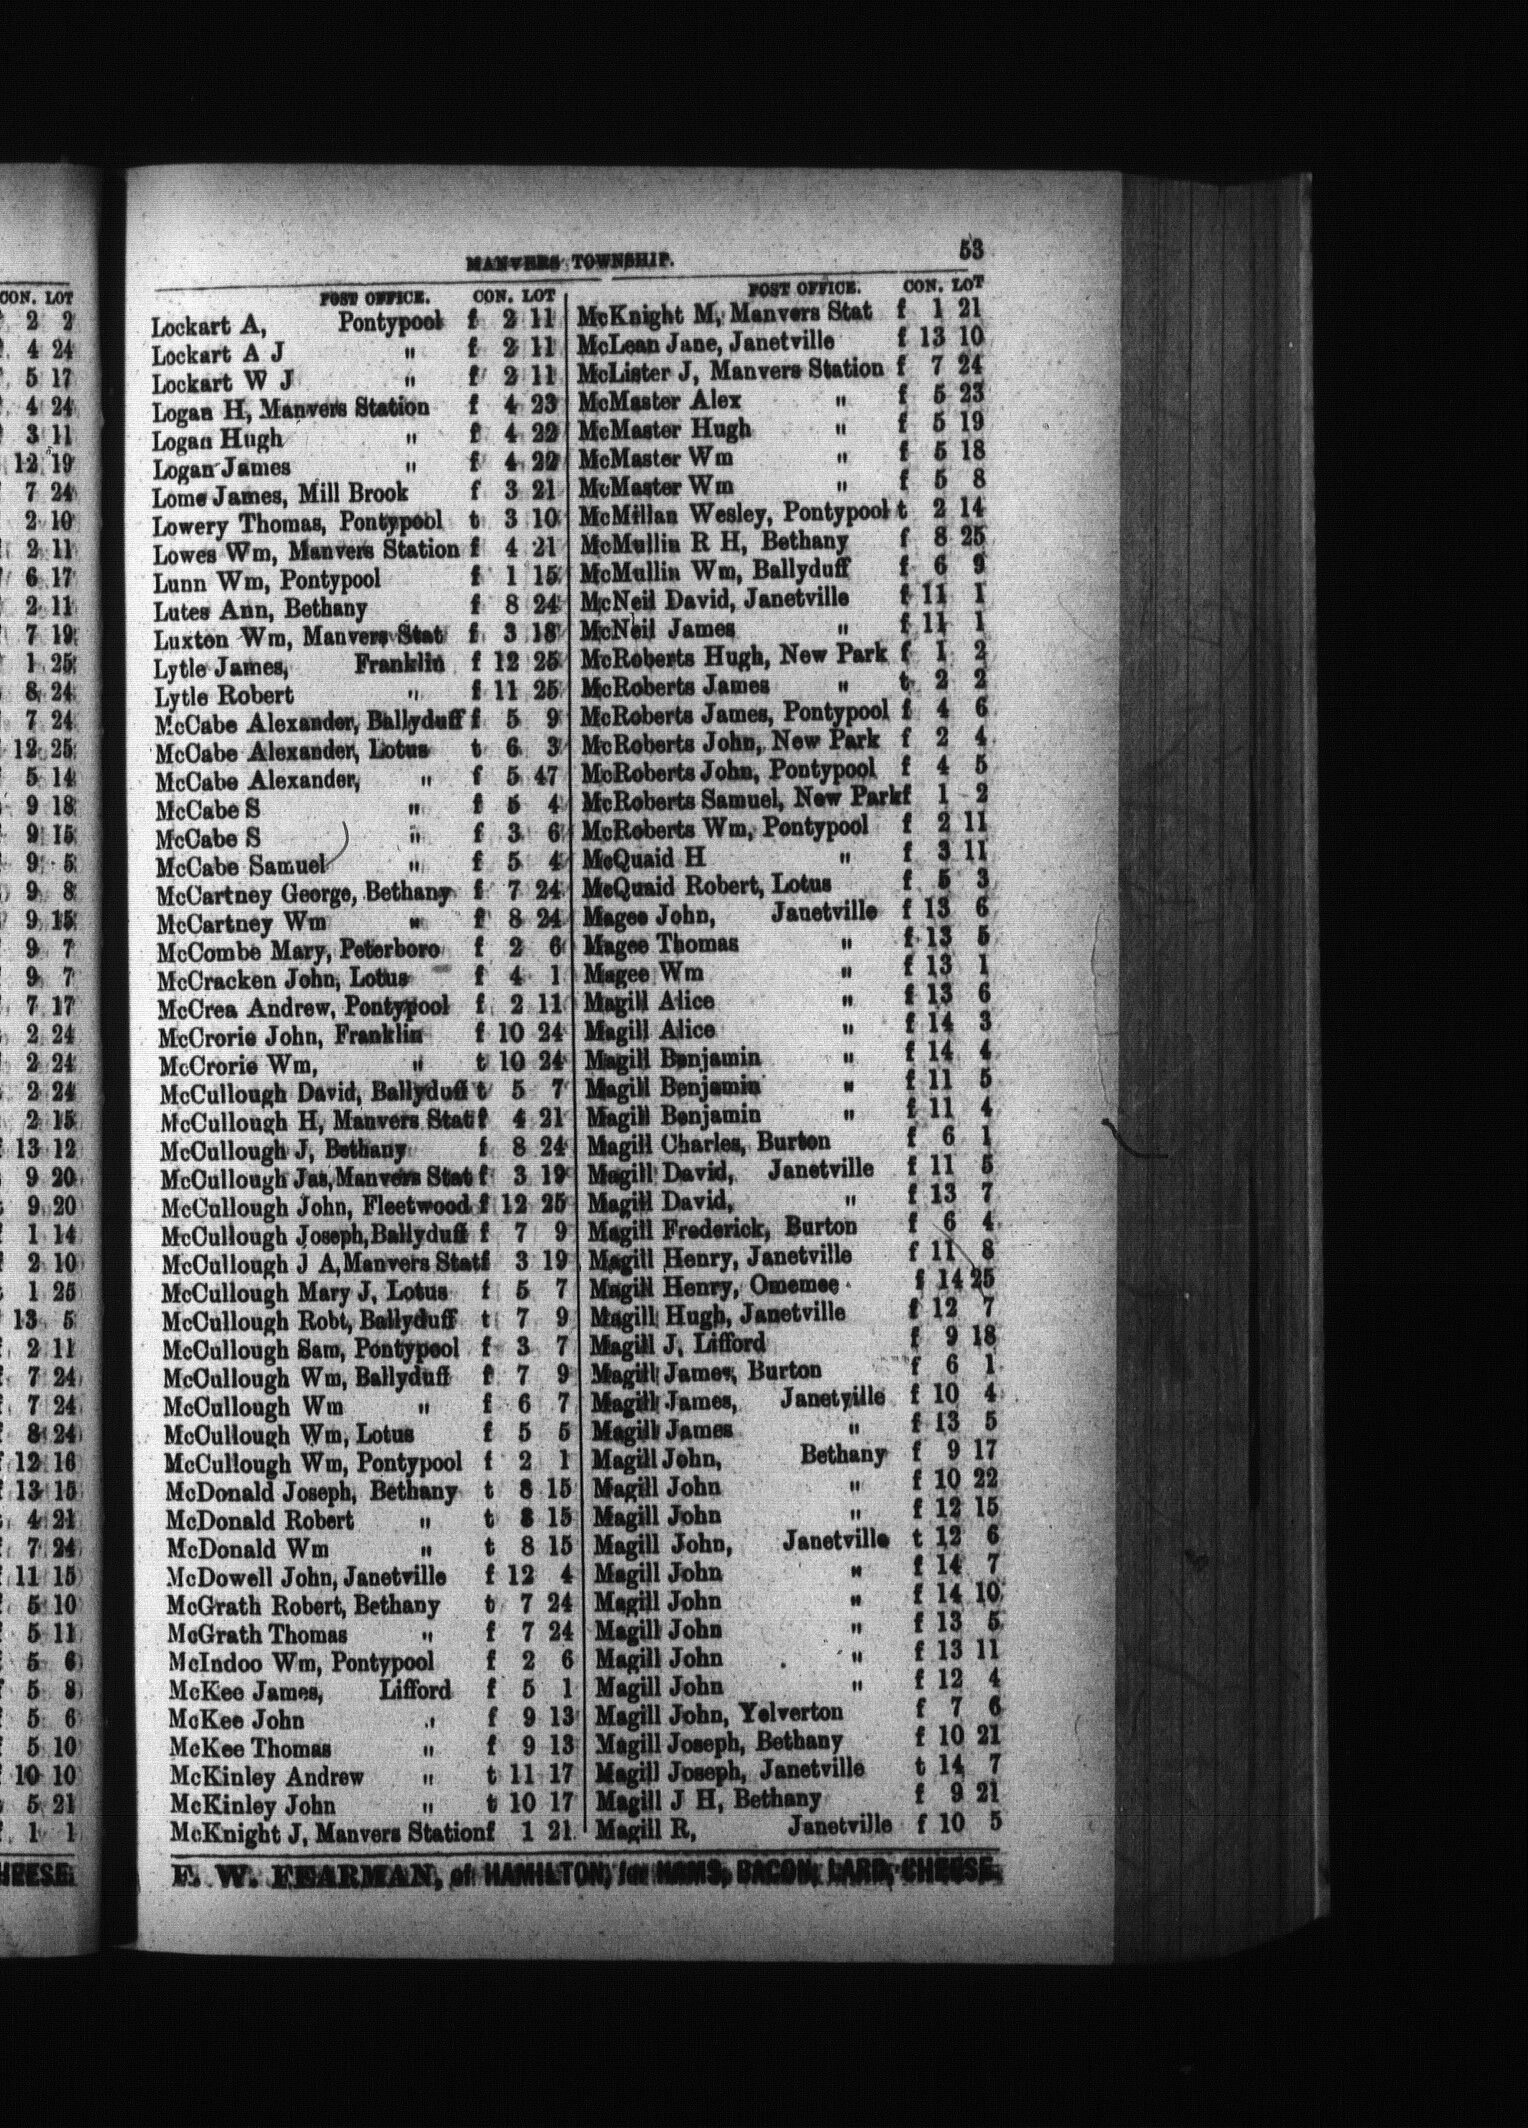 MANVERS TOWNSHIP. 53
CON. LOT
2 2
4 24
5 17
4 24
3 11
12 19
7 24
2 10
2 11
6 17
2 11
7 19
1 25
8 24
7 24
12 25
5 14
9 18
9 15
9 5
9 8
9 15
9 7
9 7
7 17
2 24
2 24
2 24
2 15
13 12
9 20
9 20
1 14
2 10
1 25
13 5
2 11
7 24
7 24
8 24
12 16
13 15
4 21
7 24
11 15
5 10
5 11
5 6
5 8
5 6
5 10
10 10
5 21
1 1
POST OFFICE. CON. LOT
Lockart A, Pontypool f 2 11
Lockart A J " f 2 11
Lockart W J " f 2 11
Logan H, Manvers Station f 4 23
Logan Hugh " f 4 22
Logan James " f 4 22
Lome James, Mill Brook f 3 21
Lowery Thomas, Pontypool t 3 10
Lowes Wm, Manvers Station f 4 21
Lunn Wm, Pontypool f 1 15
Lutes Ann, Bethany f 8 24
Luxton Wm, Manvers Stat f 3 18
Lytle James, Franklin f 12 25
Lytle Robert " f 11 25
McCabe Alexander, Ballyduff f 5 9
McCabe Alexander, Lotus t 6 3
McCabe Alexander, " f 5 47
McCabe S " f 5 4
McCabe S " f 3 6
McCabe Samuel " f 5 4
McCartney George, Bethany f 7 24
McCartney Wm " f 8 24
McCombe Mary, Peterboro f 2 6
McCracken John, Lotus f 4 1
McCrea Andrew, Pontypool f 2 11
McCrorie John, Franklin f 10 24
McCrorie Wm, " t 10 24
McCullough David, Ballyduff t 5 7
McCullough H, Manvers Stat f 4 21
McCullough J, Bethany f 8 24
McCullough Jas, Manvers Stat f 3 19
McCullough John, Fleetwood f 12 25
McCullough Joseph, Ballyduff f 7 9
McCullough J A, Manvers Stat f 3 19
McCullough Mary J, Lotus f 5 7
McCullough Robt, Ballyduff t 7 9
McCullough Sam, Pontypool f 3 7
McCullough Wm, Ballyduff f 7 9
McCullough Wm " f 6 7
McCullough Wm, Lotus f 5 5
McCullough Wm, Pontypool f 2 1
McDonald Joseph, Bethany t 8 15
McDonald Robert " t 8 15
McDonald Wm " t 8 15
McDowell John, Janetville f 12 4
McGrath Robert, Bethany t 7 24
McGrath Thomas " f 7 24
McIndoo Wm, Pontypool f 2 6
McKee James, Lifford f 5 1
McKee John " f 9 13
McKee Thomas " f 9 13
McKinley Andrew " t 11 17
McKinley John " t 10 17
McKnight J, Manvers Station f 1 21
POST OFFICE. CON. LOT
McKnight M, Manvers Stat f 1 21
McLean Jane, Janetville f 13 10
McLister J, Manvers Station f 7 24
McMaster Alex " f 5 23
McMaster Hugh " f 5 19
McMaster Wm " f 5 18
McMaster Wm " f 5 8
McMillan Wesley, Pontypool t 2 14
McMullin R H, Bethany f 8 25
McMullin Wm, Ballyduff f 6 9
McNeil David, Janetville f 11 1
McNeil James " f 11 1
McRoberts Hugh, New Park f 1 2
McRoberts James " t 2 2
McRoberts James, Pontypool f 4 6
McRoberts John, New Park f 2 4
McRoberts John, Pontypool f 4 5
McRoberts Samuel, New Park f 1 2
McRoberts Wm, Pontypool f 2 11
McQuaid H " f 3 11
McQuaid Robert, Lotus f 5 3
Magee John, Janetville f 13 6
Magee Thomas " f 13 5
Magee Wm " f 13 1
Magill Alice " f 13 6
Magill Alice " f 14 3
Magill Benjamin " f 14 4
Magill Benjamin " f 11 5
Magill Benjamin " f 11 4
Magill Charles, Burton f 6 1
Magill David, Janetville f 11 5
Magill David, " f 13 7
Magill Frederick, Burton f 6 4
Magill Henry, Janetville f 11 8
Magill Henry, Omemee f 14 25
Magill Hugh, Janetville f 12 7
Magill J, Lifford f 9 18
Magill James, Burton f 6 1
Magill James, Janetville f 10 4
Magill James " f 13 5
Magill John, Bethany f 9 17
Magill John " f 10 22
Magill John " f 12 15
Magill John, Janetville t 12 6
Magill John " f 14 7
Magill John " f 14 10
Magill John " f 13 5
Magill John " f 13 11
Magill John " f 12 4
Magill John, Yelverton f 7 6
Magill Joseph, Bethany f 10 21
Magill Joseph, Janetville t 14 7
Magill J H, Bethany f 9 21
Magill R, Janetville f 10 5
CHEESE.
F. W. FEARMAN, of HAMILTON, for HAMS, BACON, LARD, CHEESE.